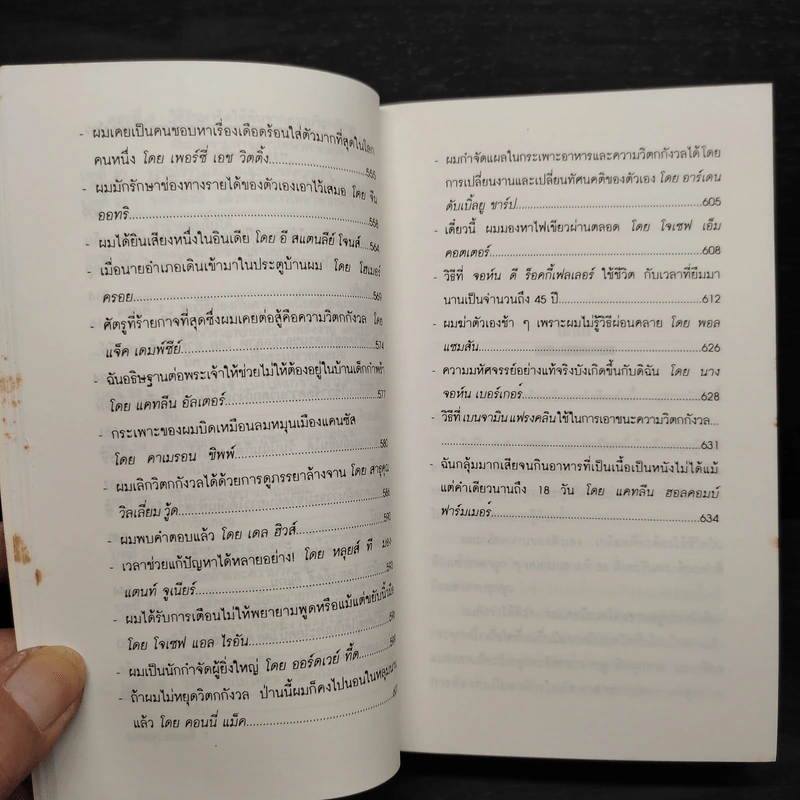 - ผมเคยเป็นคนชอบหาเรื่องเดือดร้อนใส่ตัวมากที่สุดในโลก
คนหนึ่ง โดย เพอร์ซี่ เอช วิตติ้ง 555
- ผมมักรักษาช่องทางรายได้ของตัวเองเอาไว้เสมอ โดย จีน
ออทรี 558
- ผมได้ยินเสียงหนึ่งในอินเดีย โดย อี สแตนลีย์ โจนส์ 564
- เมื่อนายอำเภอเดินเข้ามาในประตูบ้านผม โดย โฮเมอร์
ครอย 569
- ศัตรูที่ร้ายกาจที่สุดซึ่งผมเคยต่อสู้คือความวิตกกังวล โดย
แจ็ค เดมพ์ซีย์ 574
- ฉันอธิษฐานต่อพระเจ้าให้ช่วยไม่ให้ต้องอยู่ในบ้านเด็กกำพร้า
โดย แคทลีน อัลเตอร์ 577
- กระเพาะของผมบิดเหมือนลมหมุนเมืองแคนซัส
โดย คาเมรอน ชิพพ์ 580
- ผมเลิกวิตกกังวลได้ด้วยการดูภรรยาล้างจาน โดย สาธุคุณ
วิลเลี่ยม วู้ด 586
- ผมพบคำตอบแล้ว โดย เดล ฮิวส์ 590
- เวลาช่วยแก้ปัญหาได้หลายอย่าง! โดย หลุยส์ ที
แตนท์ จูเนียร์
- ผมได้รับการเตือนไม่ให้พยายามพูดหรือแม้แต่ขยับนิ้ว
โดย โจเซฟ แอล ไรอัน
- ผมเป็นนักกำจัดผู้ยิ่งใหญ่ โดย ออร์ดเวย์ ที้ด
- ถ้าผมไม่หยุดวิตกกังวล ป่านนี้ผมก็คงไปนอนในหลุม
แล้ว โดย คอนนี่ แม็ค
- ผมกำจัดแผลในกระเพาะอาหารและความวิตกกังวลได้ โดย
การเปลี่ยนงานและเปลี่ยนทัศนคติของตัวเอง โดย อาร์เดน
ดับเบิ้ลยู ชาร์ป 605
- เดี๋ยวนี้ ผมมองหาไฟเขียวผ่านตลอด โดย โจเซฟ เอ็ม
คอตเตอร์ 608
- วิธีที่ จอห์น ดี ร็อคกี้เฟลเลอร์ ใช้ชีวิต กับเวลาที่ยืมมา
นานเป็นจำนวนถึง 45 ปี 612
- ผมฆ่าตัวเองช้า ๆ เพราะผมไม่รู้วิธีผ่อนคลาย โดย พอล
แซมสัน 626
- ความมหัศจรรย์อย่างแท้จริงบังเกิดขึ้นกับดิฉัน โดย นาง
จอห์น เบอร์เกอร์ 628
- วิธีที่เบนจามิน แฟรงคลินใช้ในการเอาชนะความวิตกกังวล...
631
- ฉันกลุ้มมากเสียจนกินอาหารที่เป็นเนื้อเป็นหนังไม่ได้แม้
แต่คำเดียวนานถึง 18 วัน โดย แคทลีน ฮอลคอมบ์
ฟาร์มเมอร์ 634